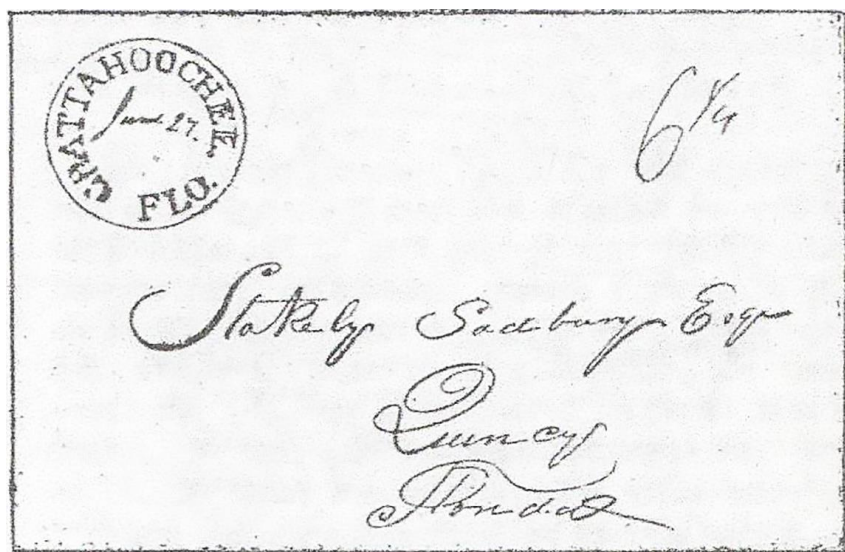 CHATTAHOOCHEE
June 27.
FLO.
6 1/4
Stokely Sadbury Esqr
Quincy
Florida